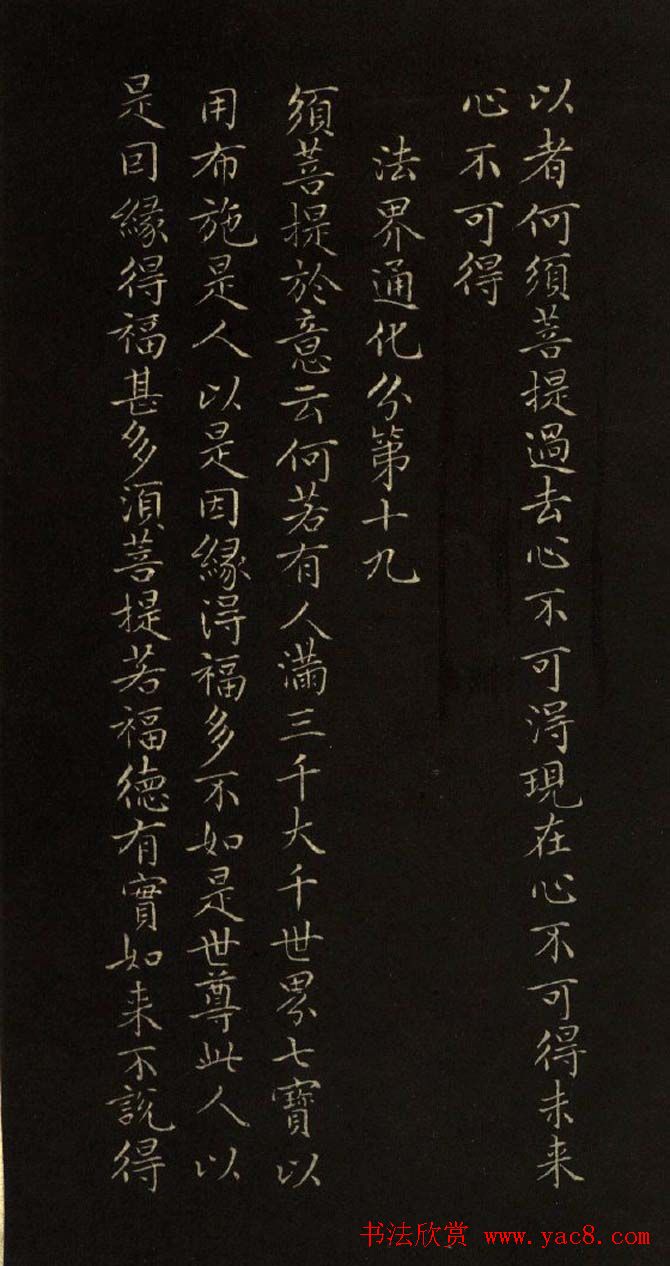 以者何須菩提過去心不可得現在心不可得未来
心不可得
法界通化分第十九
須菩提於意云何若有人滿三千大千世界七寶以
用布施是人以是因緣得福多不如是世尊此人以
是因緣得福甚多須菩提若福德有實如来不說得
书法欣赏 www.yac8.com